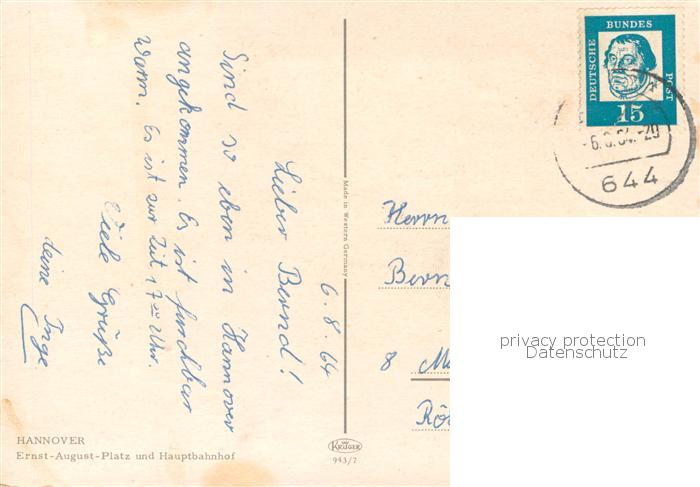 6.8.64
Lieber Bernd!
Sind so eben in Hannover
angekommen. Es ist furchbar
warm. Es ist zur Zeit 17⁰⁰ Uhr.
Viele Grüße
deine Inge
HANNOVER
Ernst-August-Platz und Hauptbahnhof
Made in Western Germany
KRÜGER
943/7
DEUTSCHE
BUNDES
POST
15
644
Herrn
8
privacy protection
Datenschutz